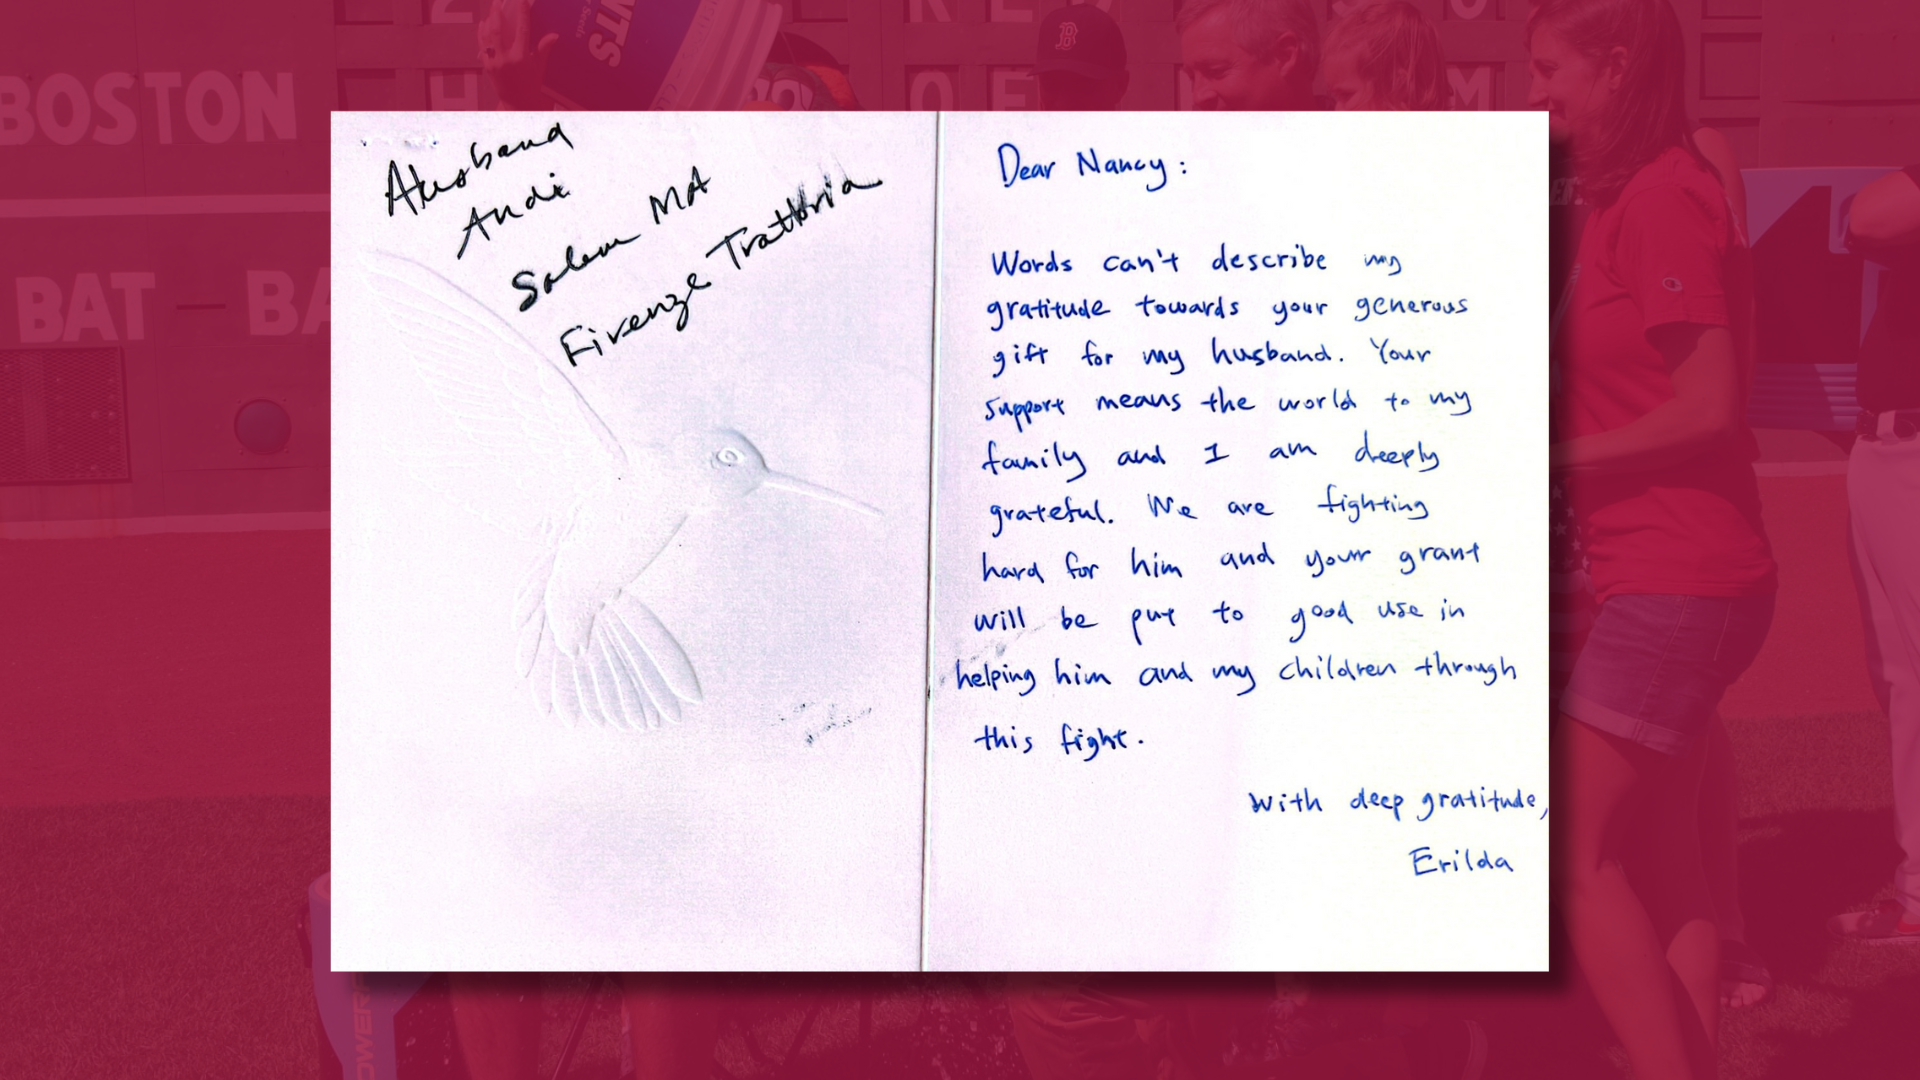 BOSTON
BAT
BA
NTS
B
Husband
Andi
Salem MA
Firenze Trattoria
Dear Nancy:
Words can't describe my
gratitude towards your generous
gift for my husband. Your
support means the world to my
family and I am deeply
grateful. We are fighting
hard for him and your grant
will be put to good use in
helping him and my children through
this fight.
With deep gratitude,
Erilda